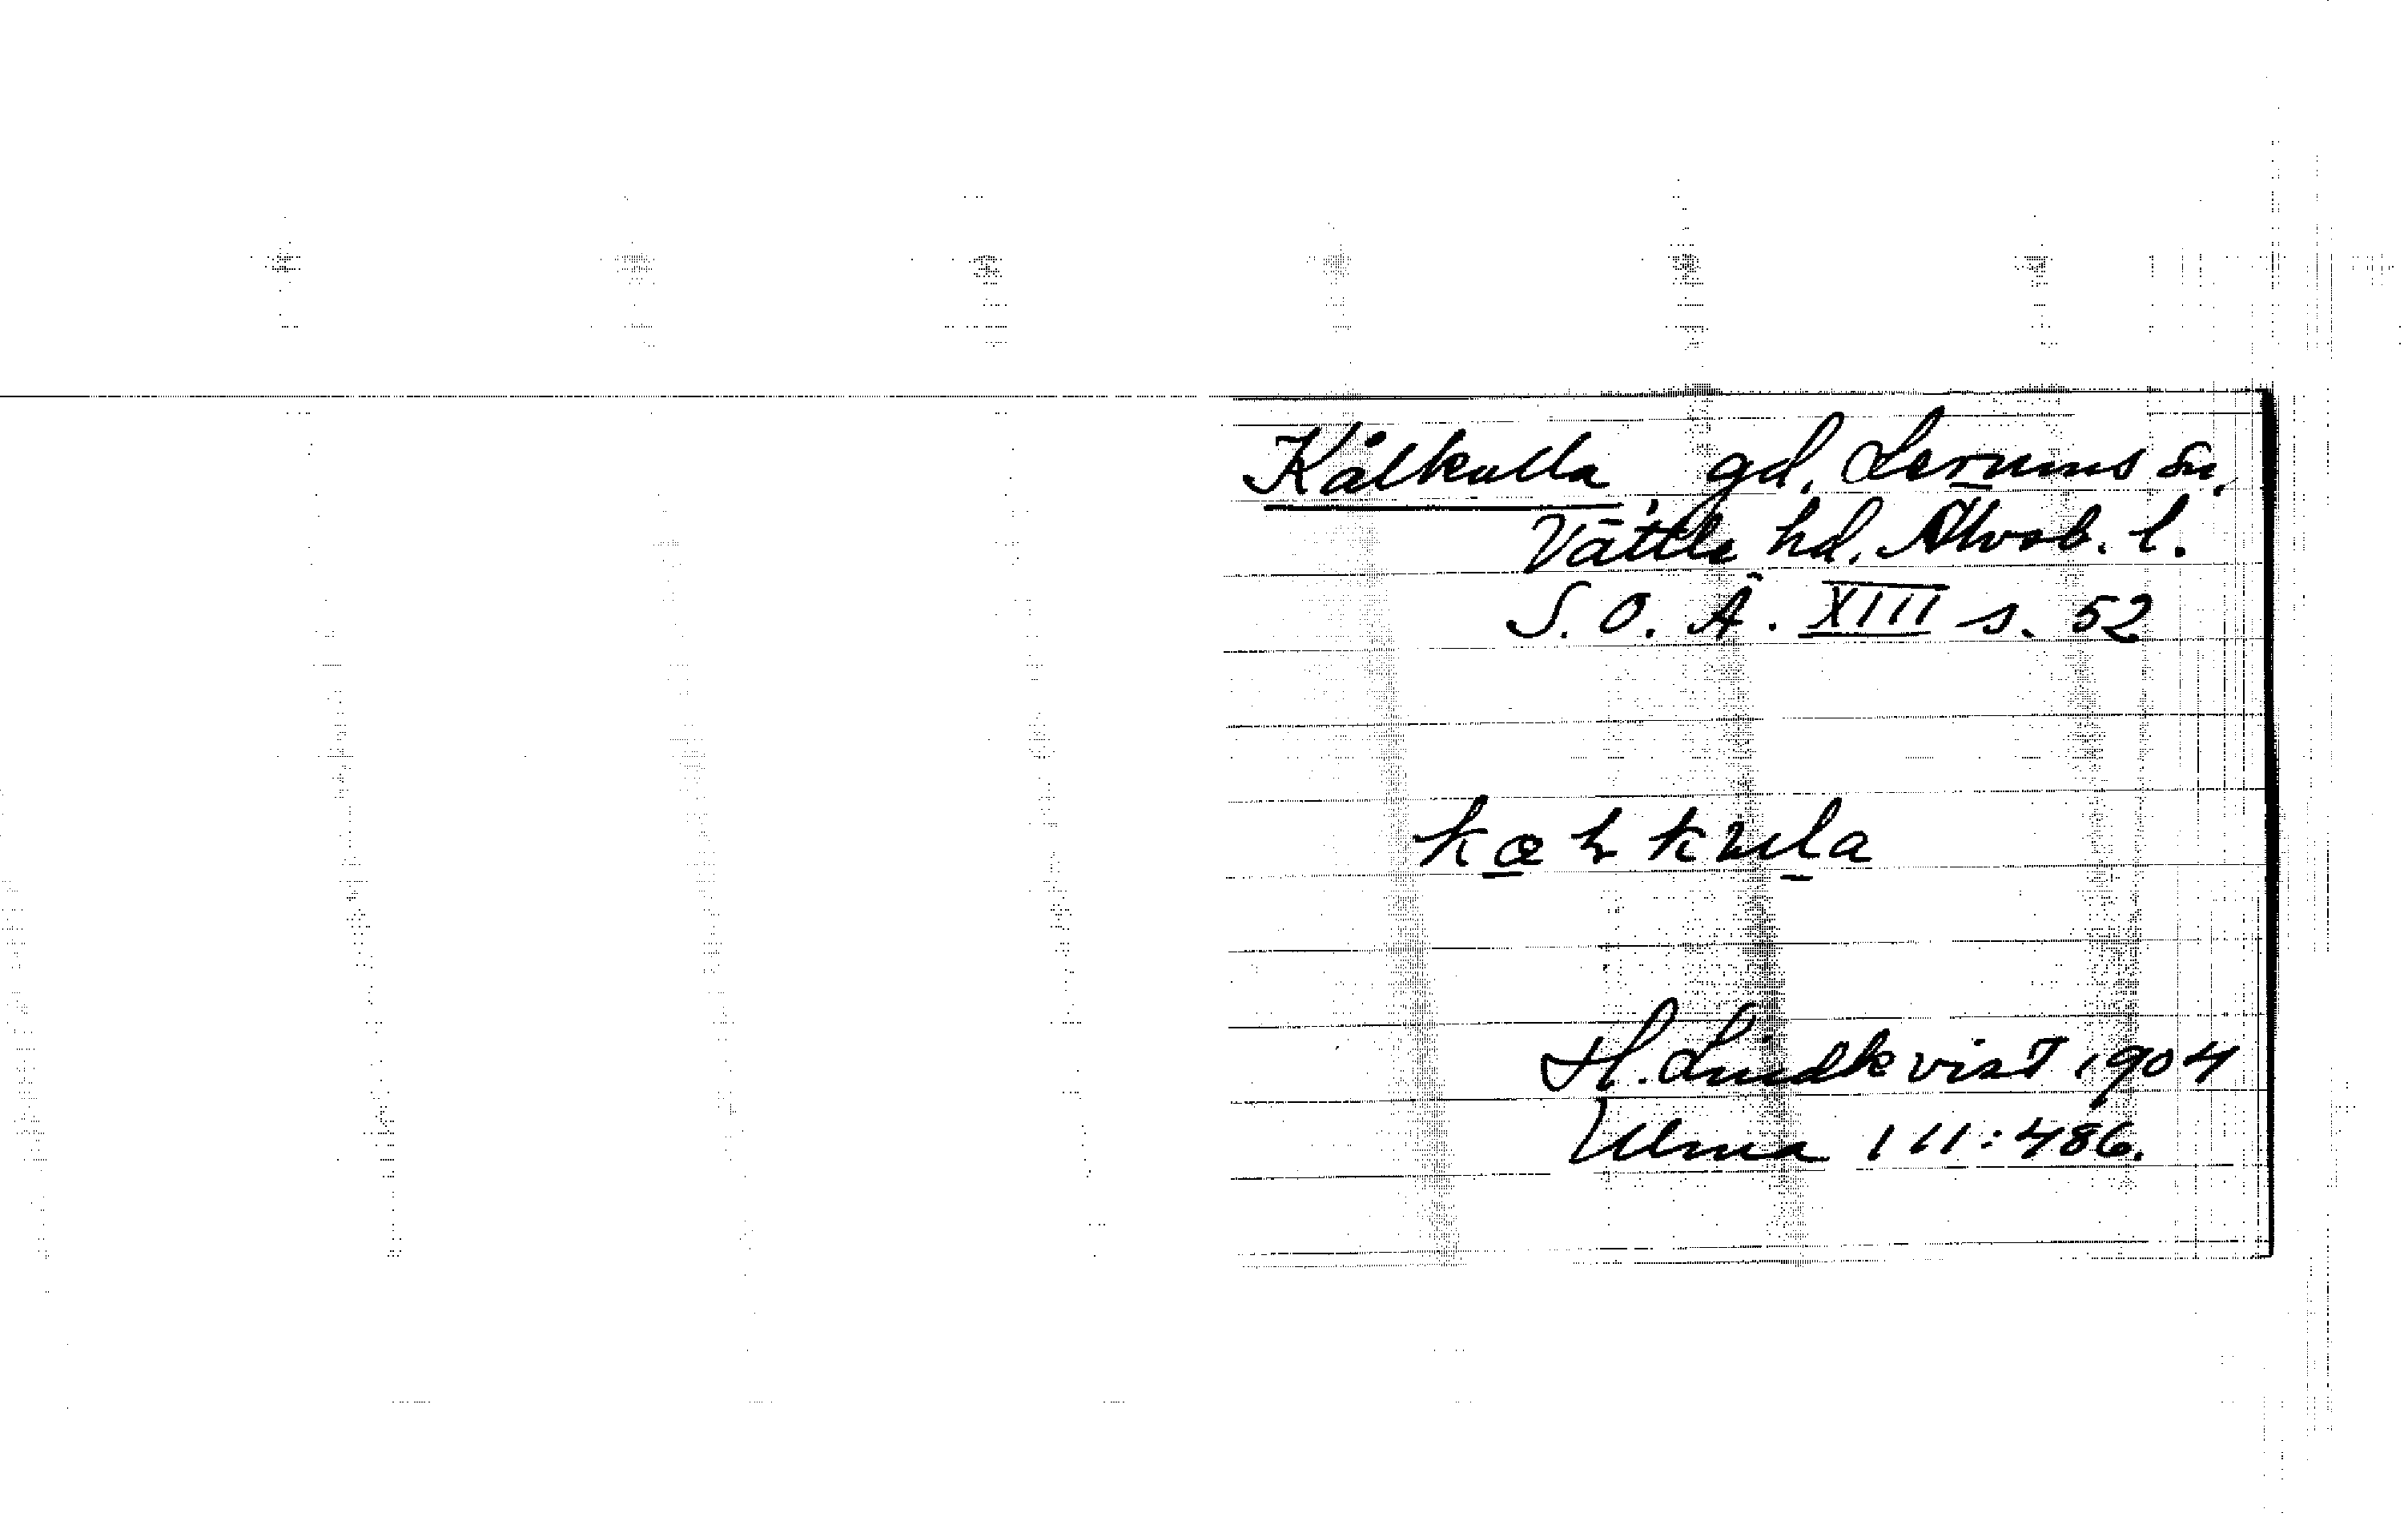 Kålkulla, gd, Lerums sn,
Vättle hd, Älvsb. l.
S. O. Ä. XIII s. 52
H. Lindkvist 1904
Ulma 111:486.